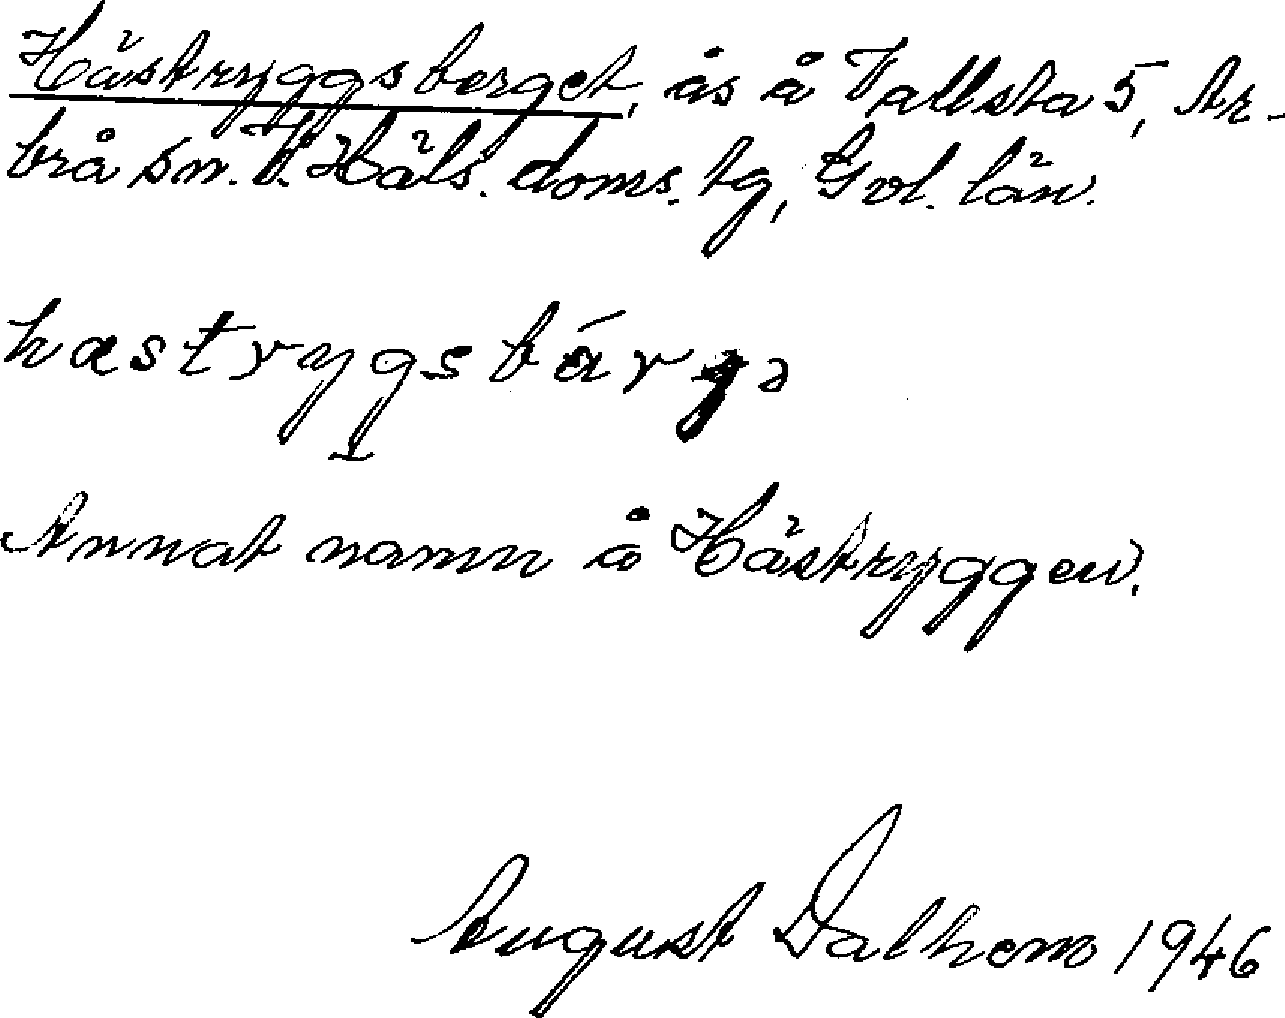 Hästryggsberget, ås å Vallsta 5, Ar-
brå sn. V. Häls. doms. tg, Gvl. län.
hæstrygsbárgə
Annat namn å Hästryggen.
August Dalhem 1946